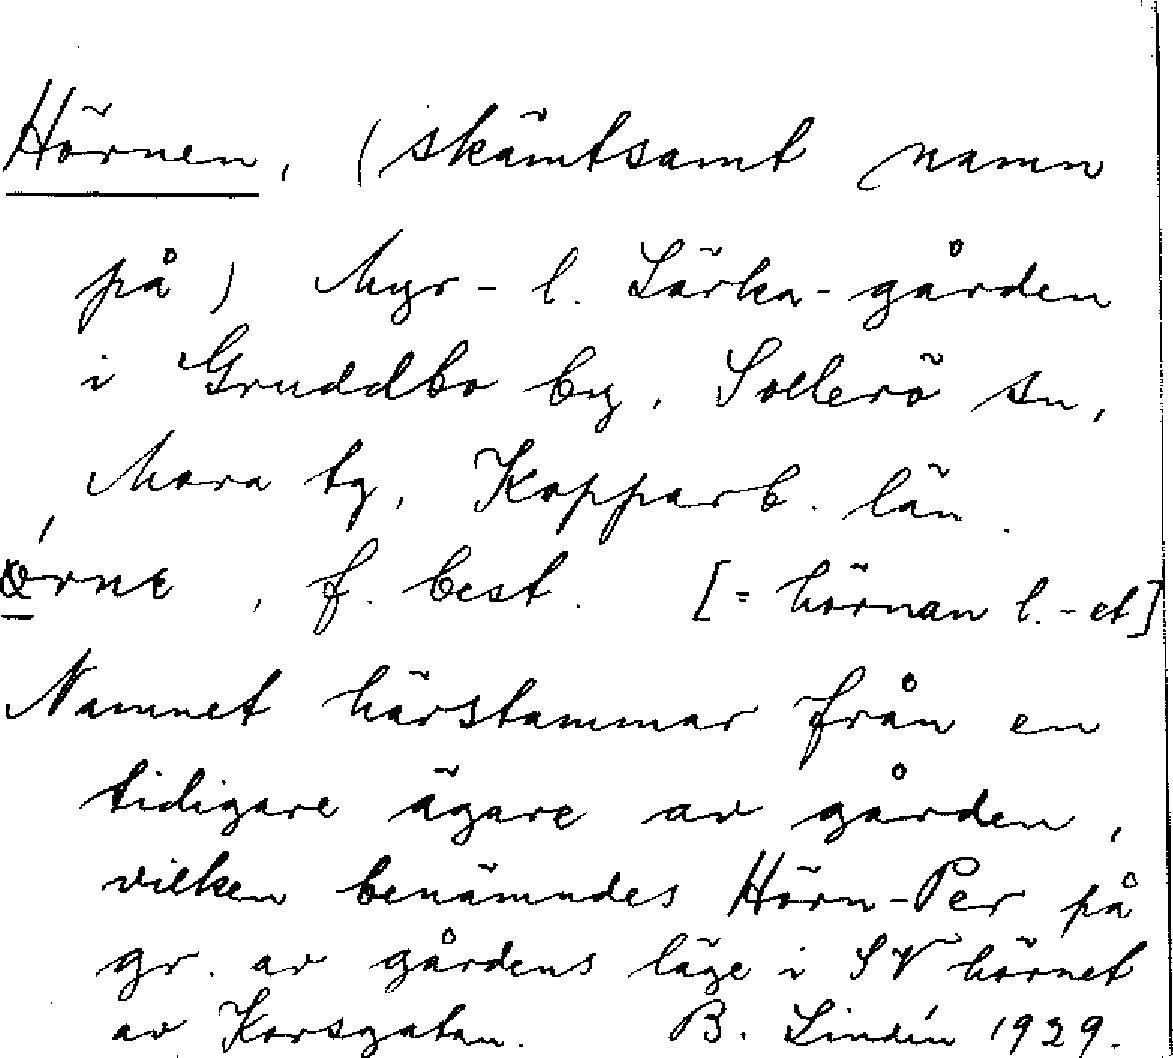 Hörnen, (skämtsamt namn
på) Myr- l. Lärka-gården
i Gruddbo by, Sollerö sn,
Mora tg, Kopparb. län.
, f. best. [= hörnan l. -et]
Namnet härstammar från en
tidigare ägare av gården,
vilken benämndes Hörn-Per på
gr. av gårdens läge i SV hörnet
av Korsgatan. B. Lindén 1929.